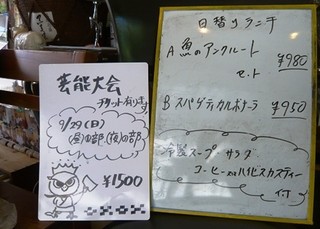 芸能大会
チケット有ります
9/29(日)
(昼)の部(夜)の部
¥1500
日替りランチ
A 魚のアンクルート
セット
¥980
B スパゲティカルボナーラ
¥950
冷製スープ・サラダ
コーヒーorハイビスカスティー
付